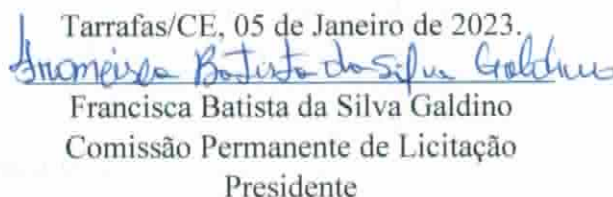 Tarrafas/CE, 05 de Janeiro de 2023.
Francisca Batista da Silva Galdino
Francisca Batista da Silva Galdino
Comissão Permanente de Licitação
Presidente